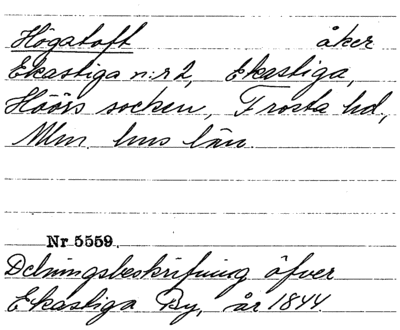 Högatoft åker
Ekastiga n:r 2, Ekastiga,
Höörs socken, Frosta hd,
Mlm. hus län.
Nr 5559.
Delningsbeskrifning öfver
Ekastiga By, år 1844.